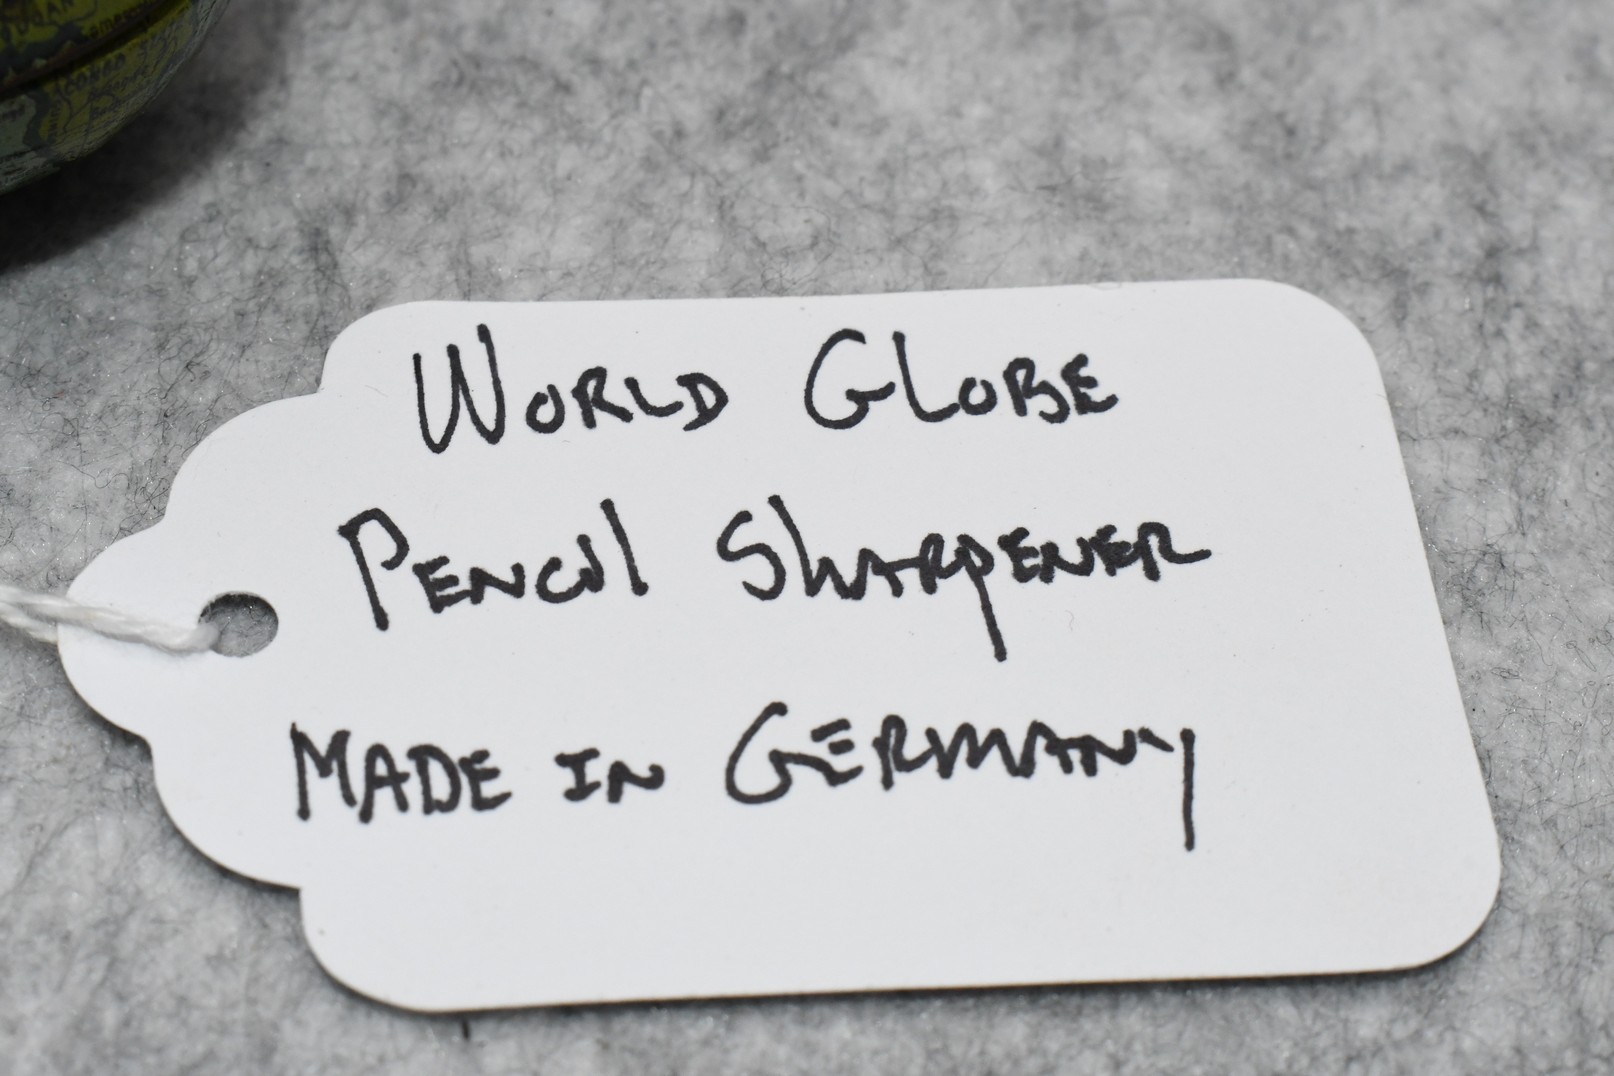 World Globe
Pencil Sharpener
Made in Germany